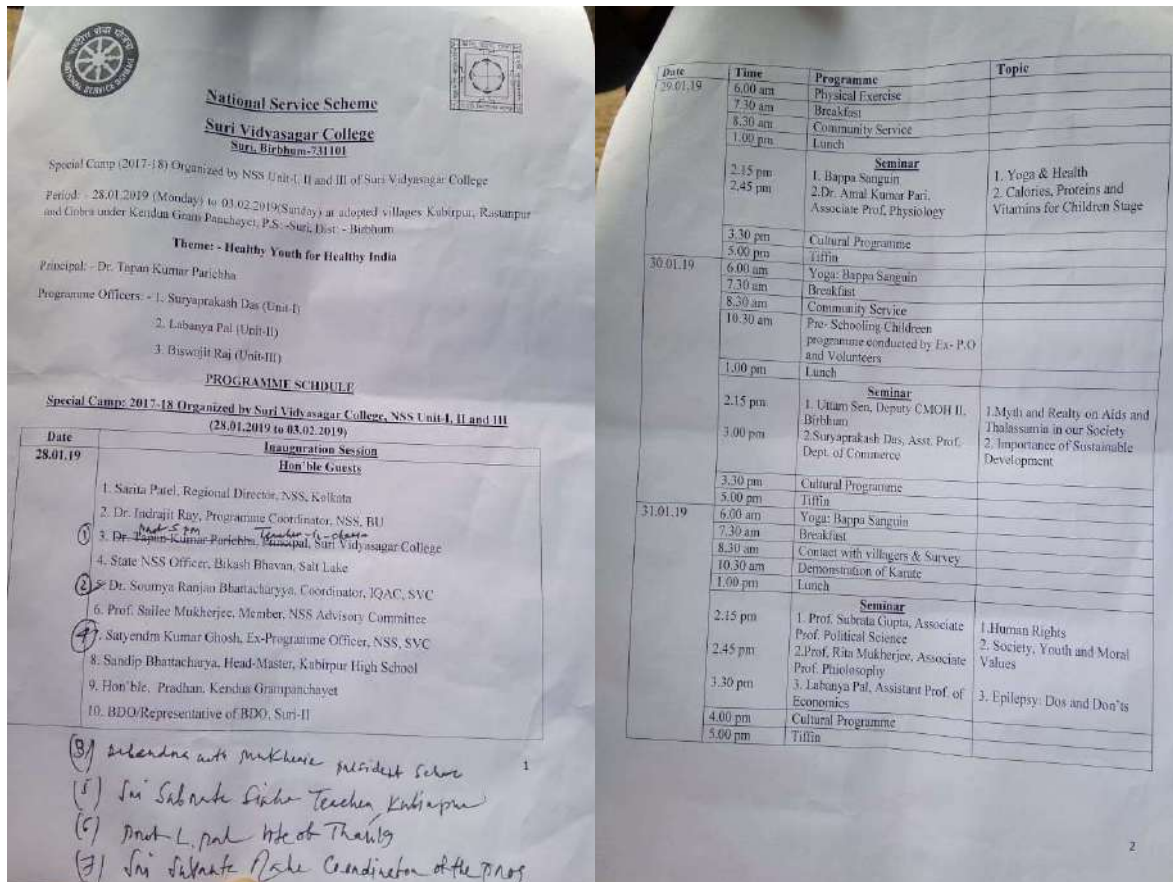 राष्ट्रीय सेवा योजना
NATIONAL SERVICE SCHEME
National Service Scheme
Suri Vidyasagar College
Suri, Birbhum-731101
Special Camp (2017-18) Organized by NSS Unit-I, II and III of Suri Vidyasagar College
Period: - 28.01.2019 (Monday) to 03.02.2019(Sunday) at adopted villages Kubirpur, Rastanpur
and Gobra under Kendua Gram Panchayet, P.S: -Suri, Dist: - Birbhum
Theme: - Healthy Youth for Healthy India
Principal: - Dr. Tapan Kumar Parichha
Programme Officers: - 1. Suryaprakash Das (Unit-I)
2. Labanya Pal (Unit-II)
3. Biswajit Raj (Unit-III)
PROGRAMME SCHDULE
Special Camp: 2017-18 Organized by Suri Vidyasagar College, NSS Unit-I, II and III
(28.01.2019 to 03.02.2019)
Date Inauguration Session
28.01.19 Hon'ble Guests
1. Sarita Patel, Regional Director, NSS, Kolkata
2. Dr. Indrajit Ray, Programme Coordinator, NSS, BU
Teacher-in-charge
① 3. Dr. Tapan Kumar Parichha, Principal, Suri Vidyasagar College
4. State NSS Officer, Bikash Bhavan, Salt Lake
② Dr. Soumya Ranjan Bhattacharyya, Coordinator, IQAC, SVC
6. Prof. Sailee Mukherjee, Member, NSS Advisory Committee
④ 7. Satyendra Kumar Ghosh, Ex-Programme Officer, NSS, SVC
8. Sandip Bhattacharya, Head-Master, Kabirpur High School
9. Hon'ble, Pradhan, Kendua Grampanchayet
10. BDO/Representative of BDO, Suri-II
(3) president
1
(5) Sri Subrata Teacher,
(6) L. pal Vote of Thanks
(7) Sri Subrata Coordinator of the prog
Date Time Programme Topic
29.01.19 6.00 am Physical Exercise
7.30 am Breakfast
8.30 am Community Service
1.00 pm Lunch
Seminar
2.15 pm 1. Bappa Sanguin 1. Yoga & Health
2.45 pm 2.Dr. Amal Kumar Pari. 2. Calories, Proteins and
Associate Prof, Physiology Vitamins for Children Stage
3.30 pm Cultural Programme
5.00 pm Tiffin
30.01.19 6.00 am Yoga: Bappa Sanguin
7.30 am Breakfast
8.30 am Community Service
10.30 am Pre- Schooling Childreen
programme conducted by Ex- P.O
and Volunteers
1.00 pm Lunch
Seminar
2.15 pm 1. Uttam Sen, Deputy CMOH II, 1.Myth and Realty on Aids and
Birbhum Thalassamia in our Society
3.00 pm 2.Suryaprakash Das, Asst. Prof. 2. Importance of Sustainable
Dept. of Commerce Development
3.30 pm Cultural Programme
5.00 pm Tiffin
31.01.19 6.00 am Yoga: Bappa Sanguin
7.30 am Breakfast
8.30 am Contact with villagers & Survey
10.30 am Demonstration of Karate
1.00 pm Lunch
Seminar
2.15 pm 1. Prof. Subrata Gupta, Associate 1.Human Rights
Prof. Political Science 2. Society, Youth and Moral
2.45 pm 2.Prof, Rita Mukherjee, Associate Values
Prof. Phiolosophy
3.30 pm 3. Labanya Pal, Assistant Prof. of 3. Epilepsy: Dos and Don'ts
Economics
4.00 pm Cultural Programme
5.00 pm Tiffin
2